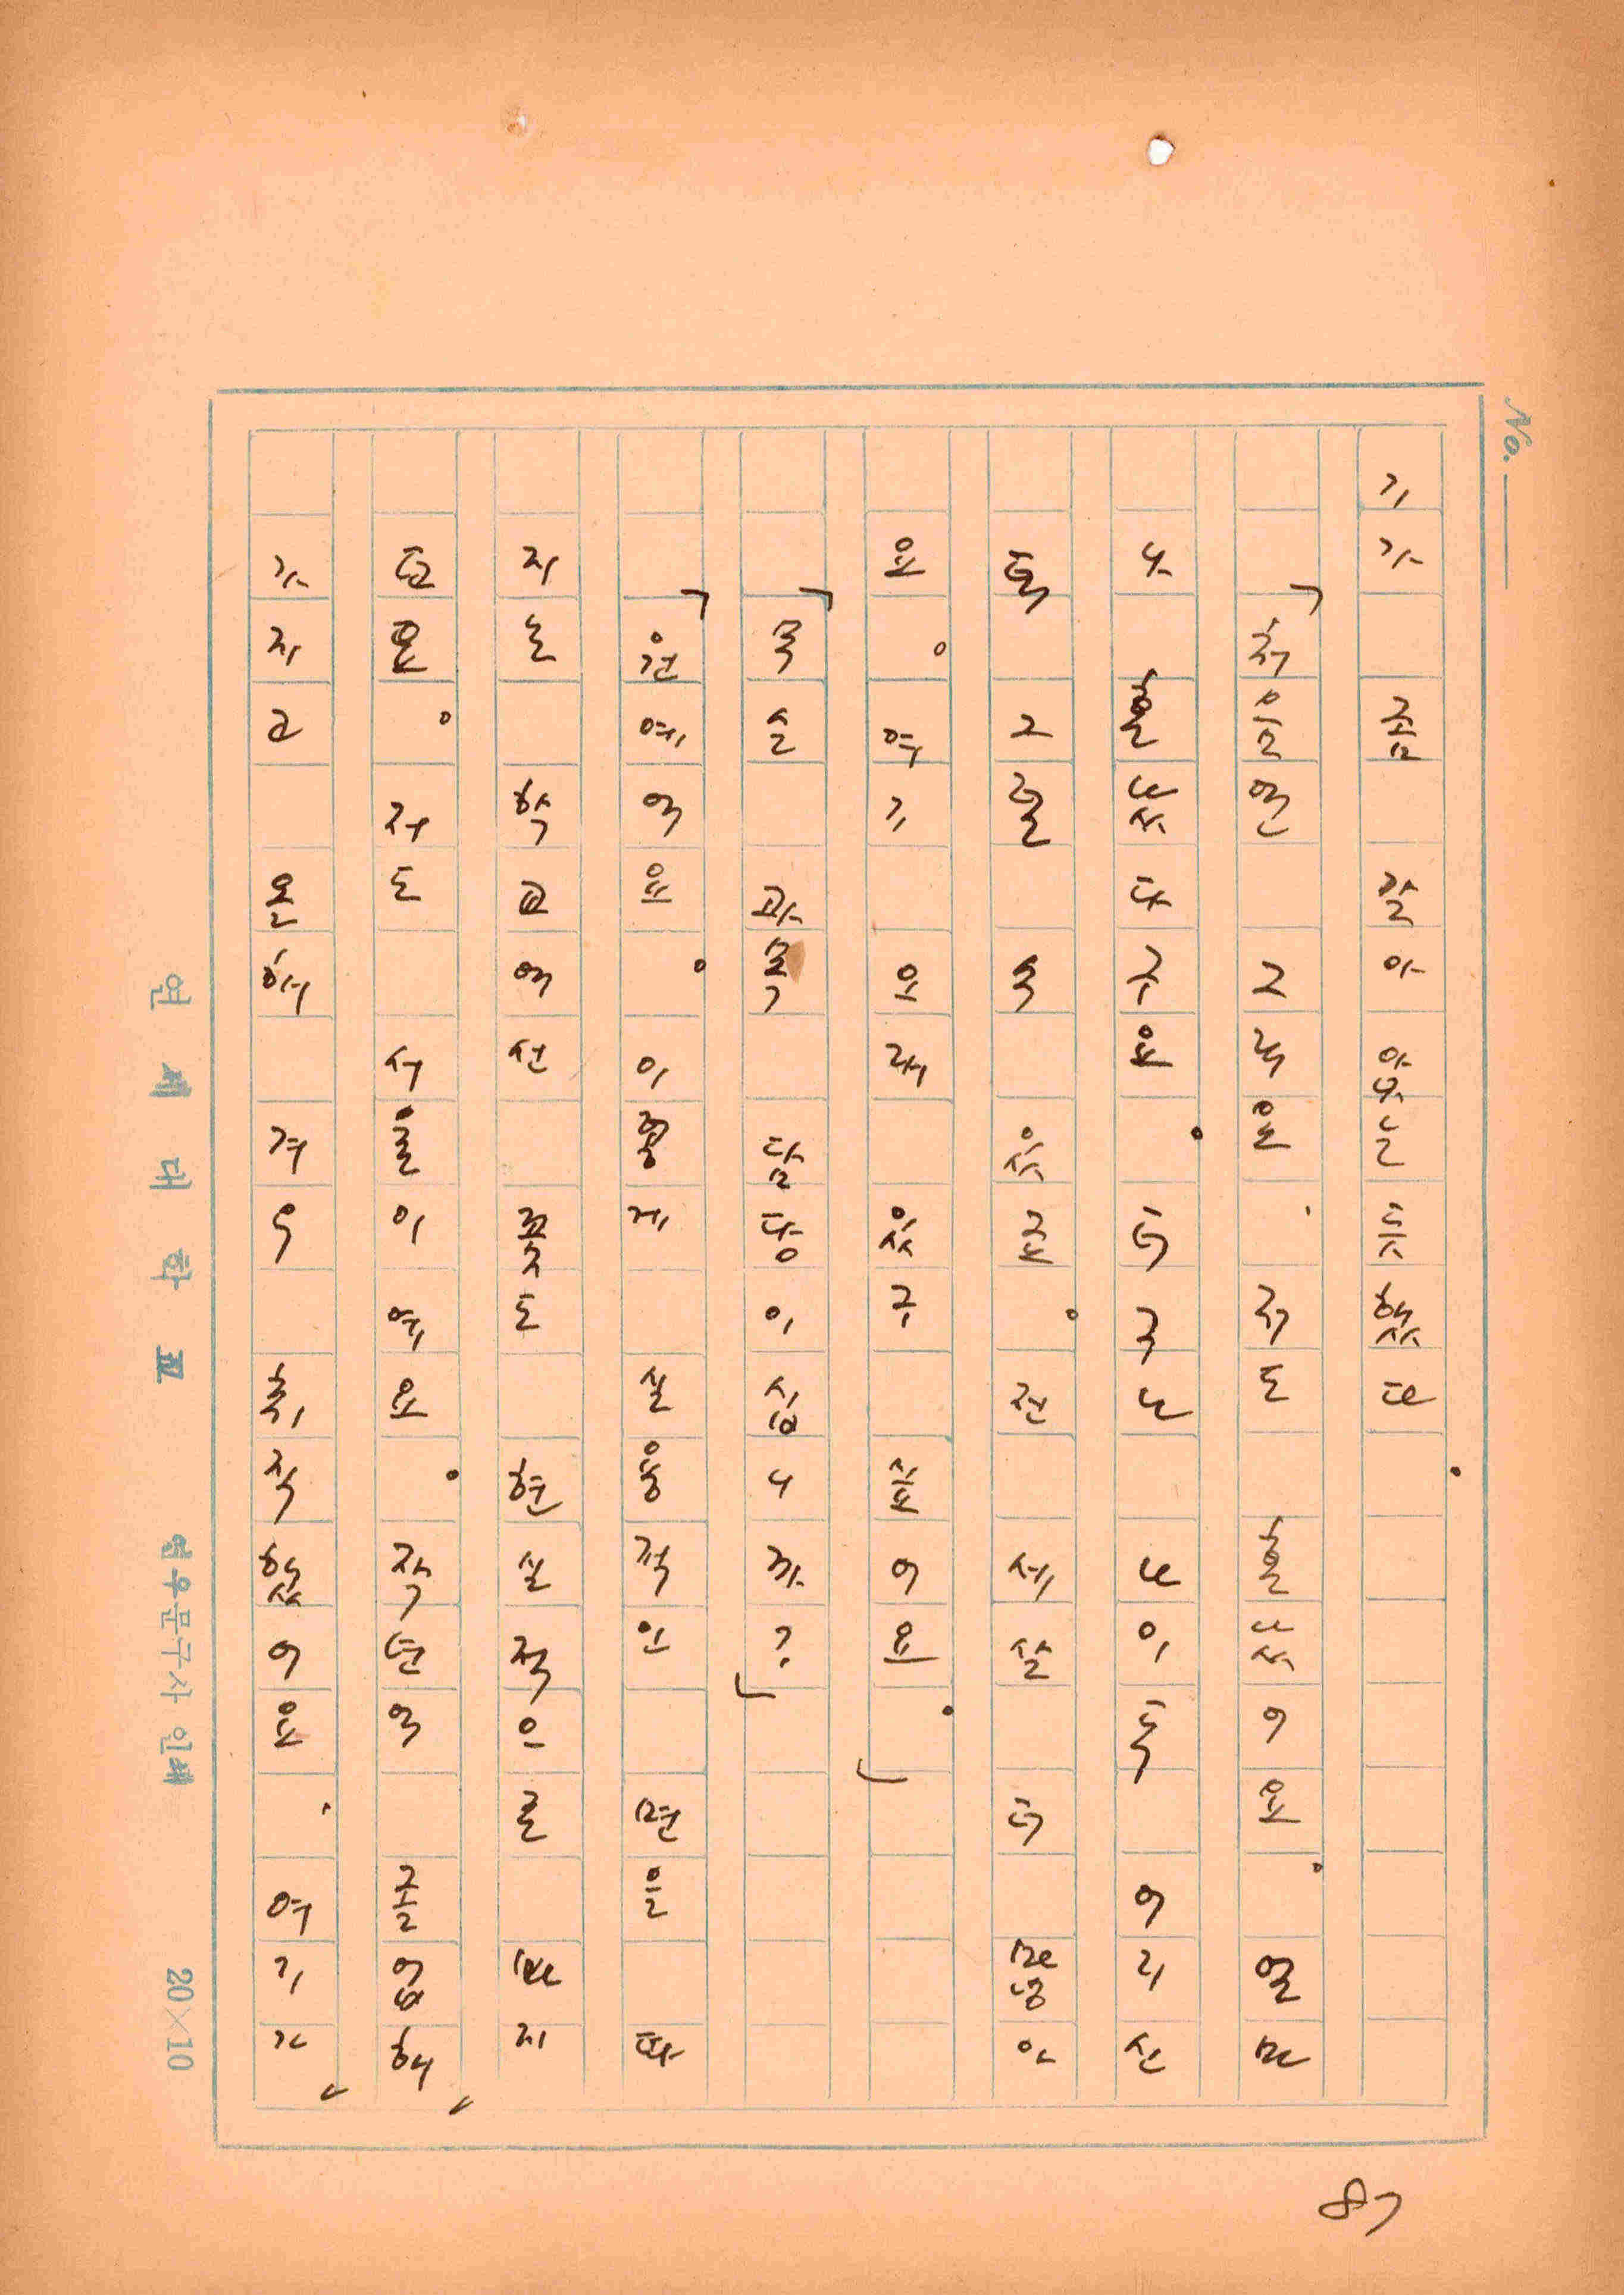 기가 좀 갈아앉는 듯했다.
「처음엔 저도 혼났어요. 얼마
나 혼났다구요. 더구나 나이 어리신
그럴 수 있죠. 전 세살 더 많아
요. 여기 오래 있구 싶어요.」
「무슨 과목 담당이십니까?」
「원예여요. 이렇게 실용적인 면을 따
지는 학교에선 꽃도 현실적으로 뵈지
저도 서울이예요. 작년에 졸업해
가지고 올해 겨우 취직했어요, 여기가
No.
연세대학교 연우문구사 인쇄 20×10
87